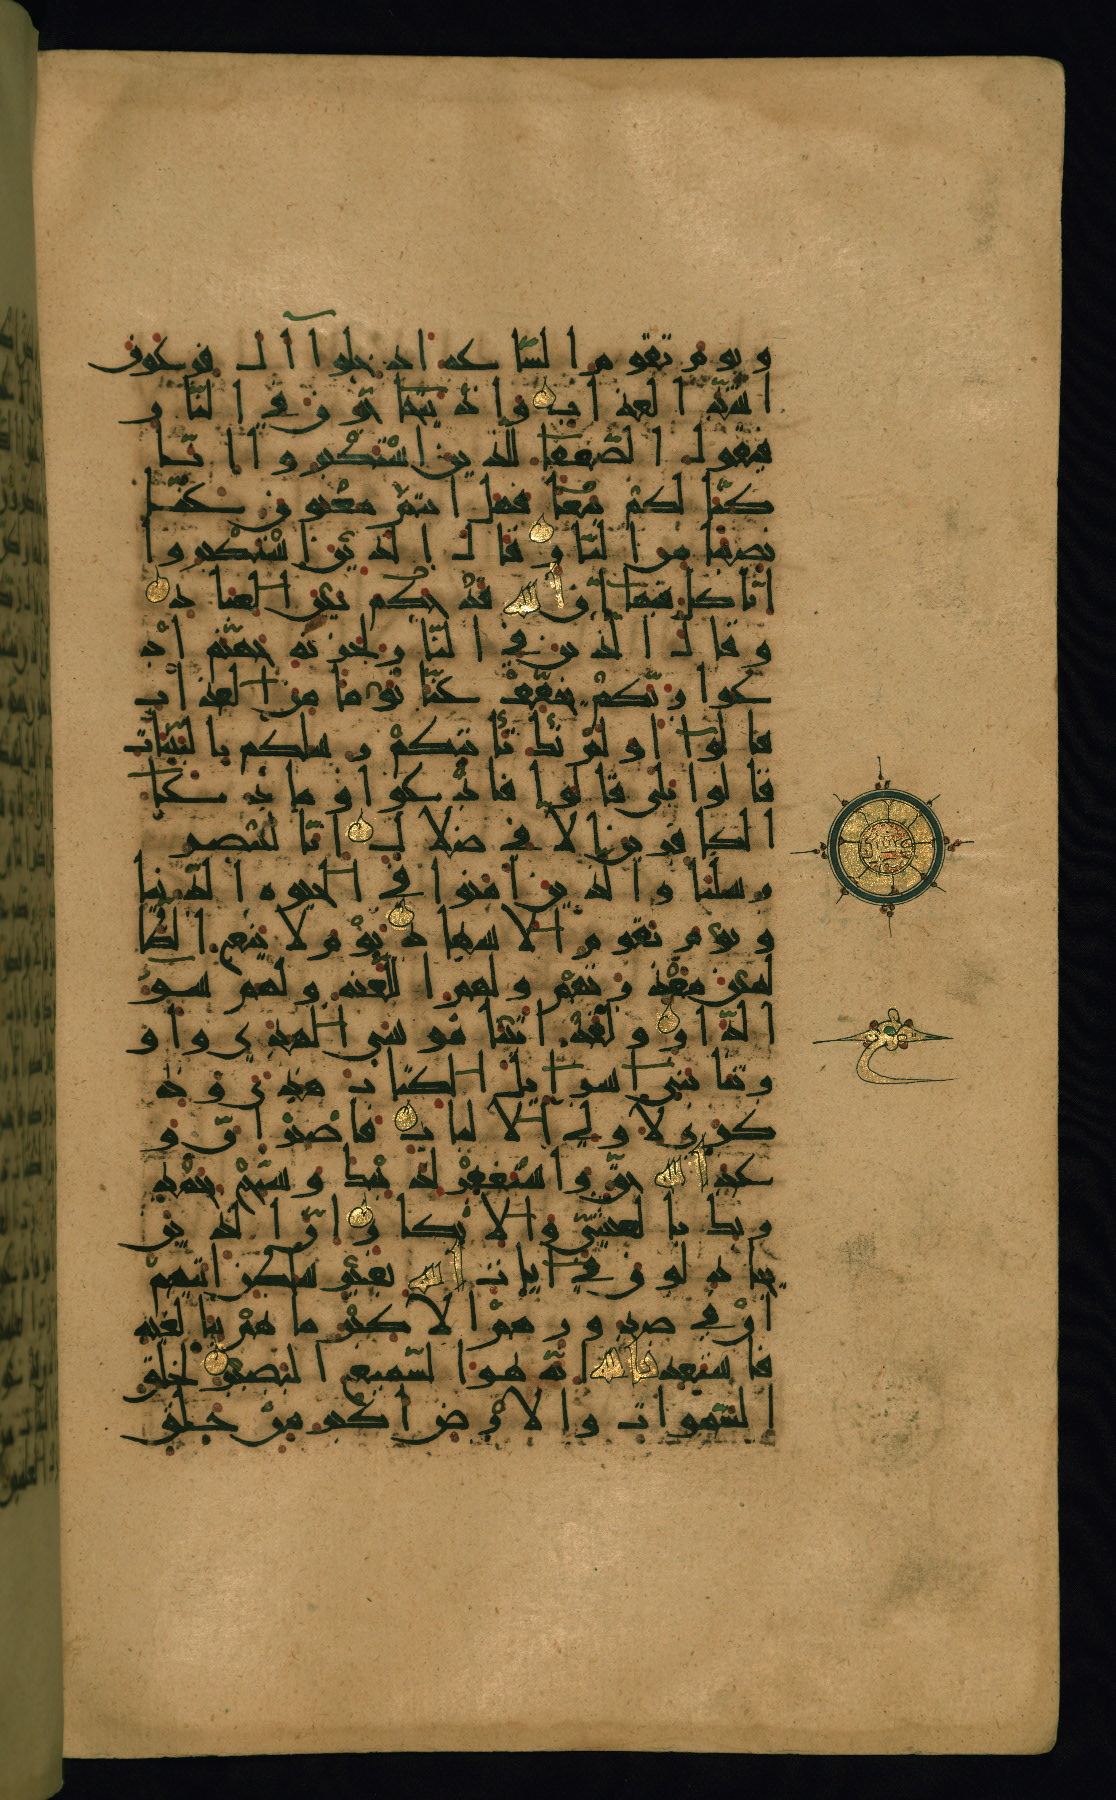 ويوم تقوم الساعة ادخلوا آل فرعون
اشد العذاب واذ يتحاجون في النار
فيقول الضعفا للذين استكبروا انا
كنا لكم تبعا فهل انتم مغنون عنا
نصيبا من النار قال الذين استكبروا
انا كل فيها ان الله قد حكم بين العباد
وقال الذين في النار لخزنة جهنم اد
عوا ربكم يخفف عنا يوما من العذاب
قالوا اولم تك تأتيكم رسلكم بالبينات
قالوا بلى قالوا فادعوا وما دعا
الكافرين الا في ضلال انا لننصر
رسلنا والذين امنوا في الحيوة الدنيا
ويوم يقوم الاشهاد يوم لا ينفع الظا
لمين معذرتهم ولهم اللعنة ولهم سو
الدار ولقد اتينا موسى الهدى واو
رثنا بني اسرايل الكتاب هدى وذ
كرى لاولي الالباب فاصبر ان و
عد الله حق واستغفر لذنبك وسبح بحمد
ربك بالعشي والابكار ان الذين
يجادلون في ايات الله بغير سلطان اتيهم
ان في صدورهم الا كبر ما هم ببالغيه
فاستعذ بالله انه هو السميع البصير لخلق
السموات والارض اكبر من خلق